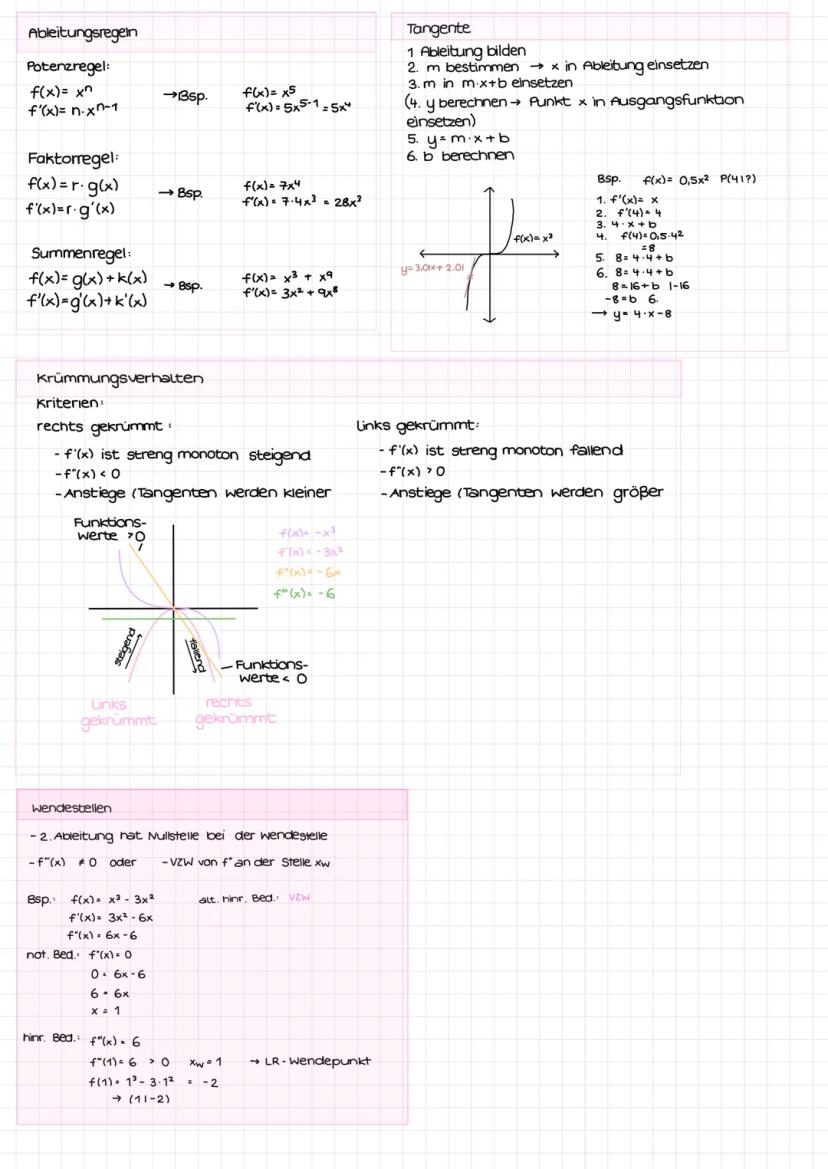 Ableitungsregeln
Potenzregel:
f(x)= xⁿ →Bsp. f(x)= x⁵
f'(x)= n·xⁿ⁻¹ f'(x)= 5x⁵⁻¹ = 5x⁴
Faktorregel:
f(x)= r· g(x) → Bsp. f(x)= 7x⁴
f'(x)=r·g'(x) f'(x)= 7·4x³ = 28x³
Summenregel:
f(x)= g(x) + k(x) → Bsp. f(x)= x³ + x⁹
f'(x)=g'(x)+k'(x) f'(x)= 3x² + 9x⁸
Tangente
1 Ableitung bilden
2. m bestimmen → x in Ableitung einsetzen
3. m in m·x+b einsetzen
(4. y berechnen→ Punkt x in Ausgangsfunktion
einsetzen)
5. y= m·x+b
6. b berechnen
f(x)= x³
y=3,01x+2.01
Bsp. f(x)= 0,5x² P(4|?)
1. f'(x)= x
2. f'(4)= 4
3. 4·x+b
4. f(4)=0,5·4²
=8
5. 8= 4·4+b
6. 8= 4·4+b
8=16+b |-16
-8=b 6.
→ y= 4·x-8
Krümmungsverhalten
Kriterien:
rechts gekrümmt :
- f'(x) ist streng monoton steigend
- f"(x) < 0
- Anstiege (Tangenten werden kleiner
Links gekrümmt:
- f'(x) ist streng monoton fallend
- f"(x) > 0
- Anstiege (Tangenten werden größer
Funktions-
werte >0
f(x)= -x³
f'(x)= -3x²
f"(x)= -6x
f'''(x)= -6
steigend
fallend
Funktions-
werte < 0
Links
gekrümmt
rechts
gekrümmt
Wendestellen
- 2. Ableitung hat Nullstelle bei der Wendestelle
- f'''(x) ≠ 0 oder - VZW von f" an der Stelle xw
Bsp.: f(x)= x³ - 3x² alt. hinr. Bed.: VZW
f'(x)= 3x² - 6x
f"(x)= 6x-6
not. Bed.: f"(x)= 0
0 = 6x-6
6 = 6x
x = 1
hinr. Bed.: f'''(x) = 6
f'''(1)= 6 > 0 xw=1 → LR-Wendepunkt
f(1)= 1³ - 3·1² = -2
→ (1|-2)